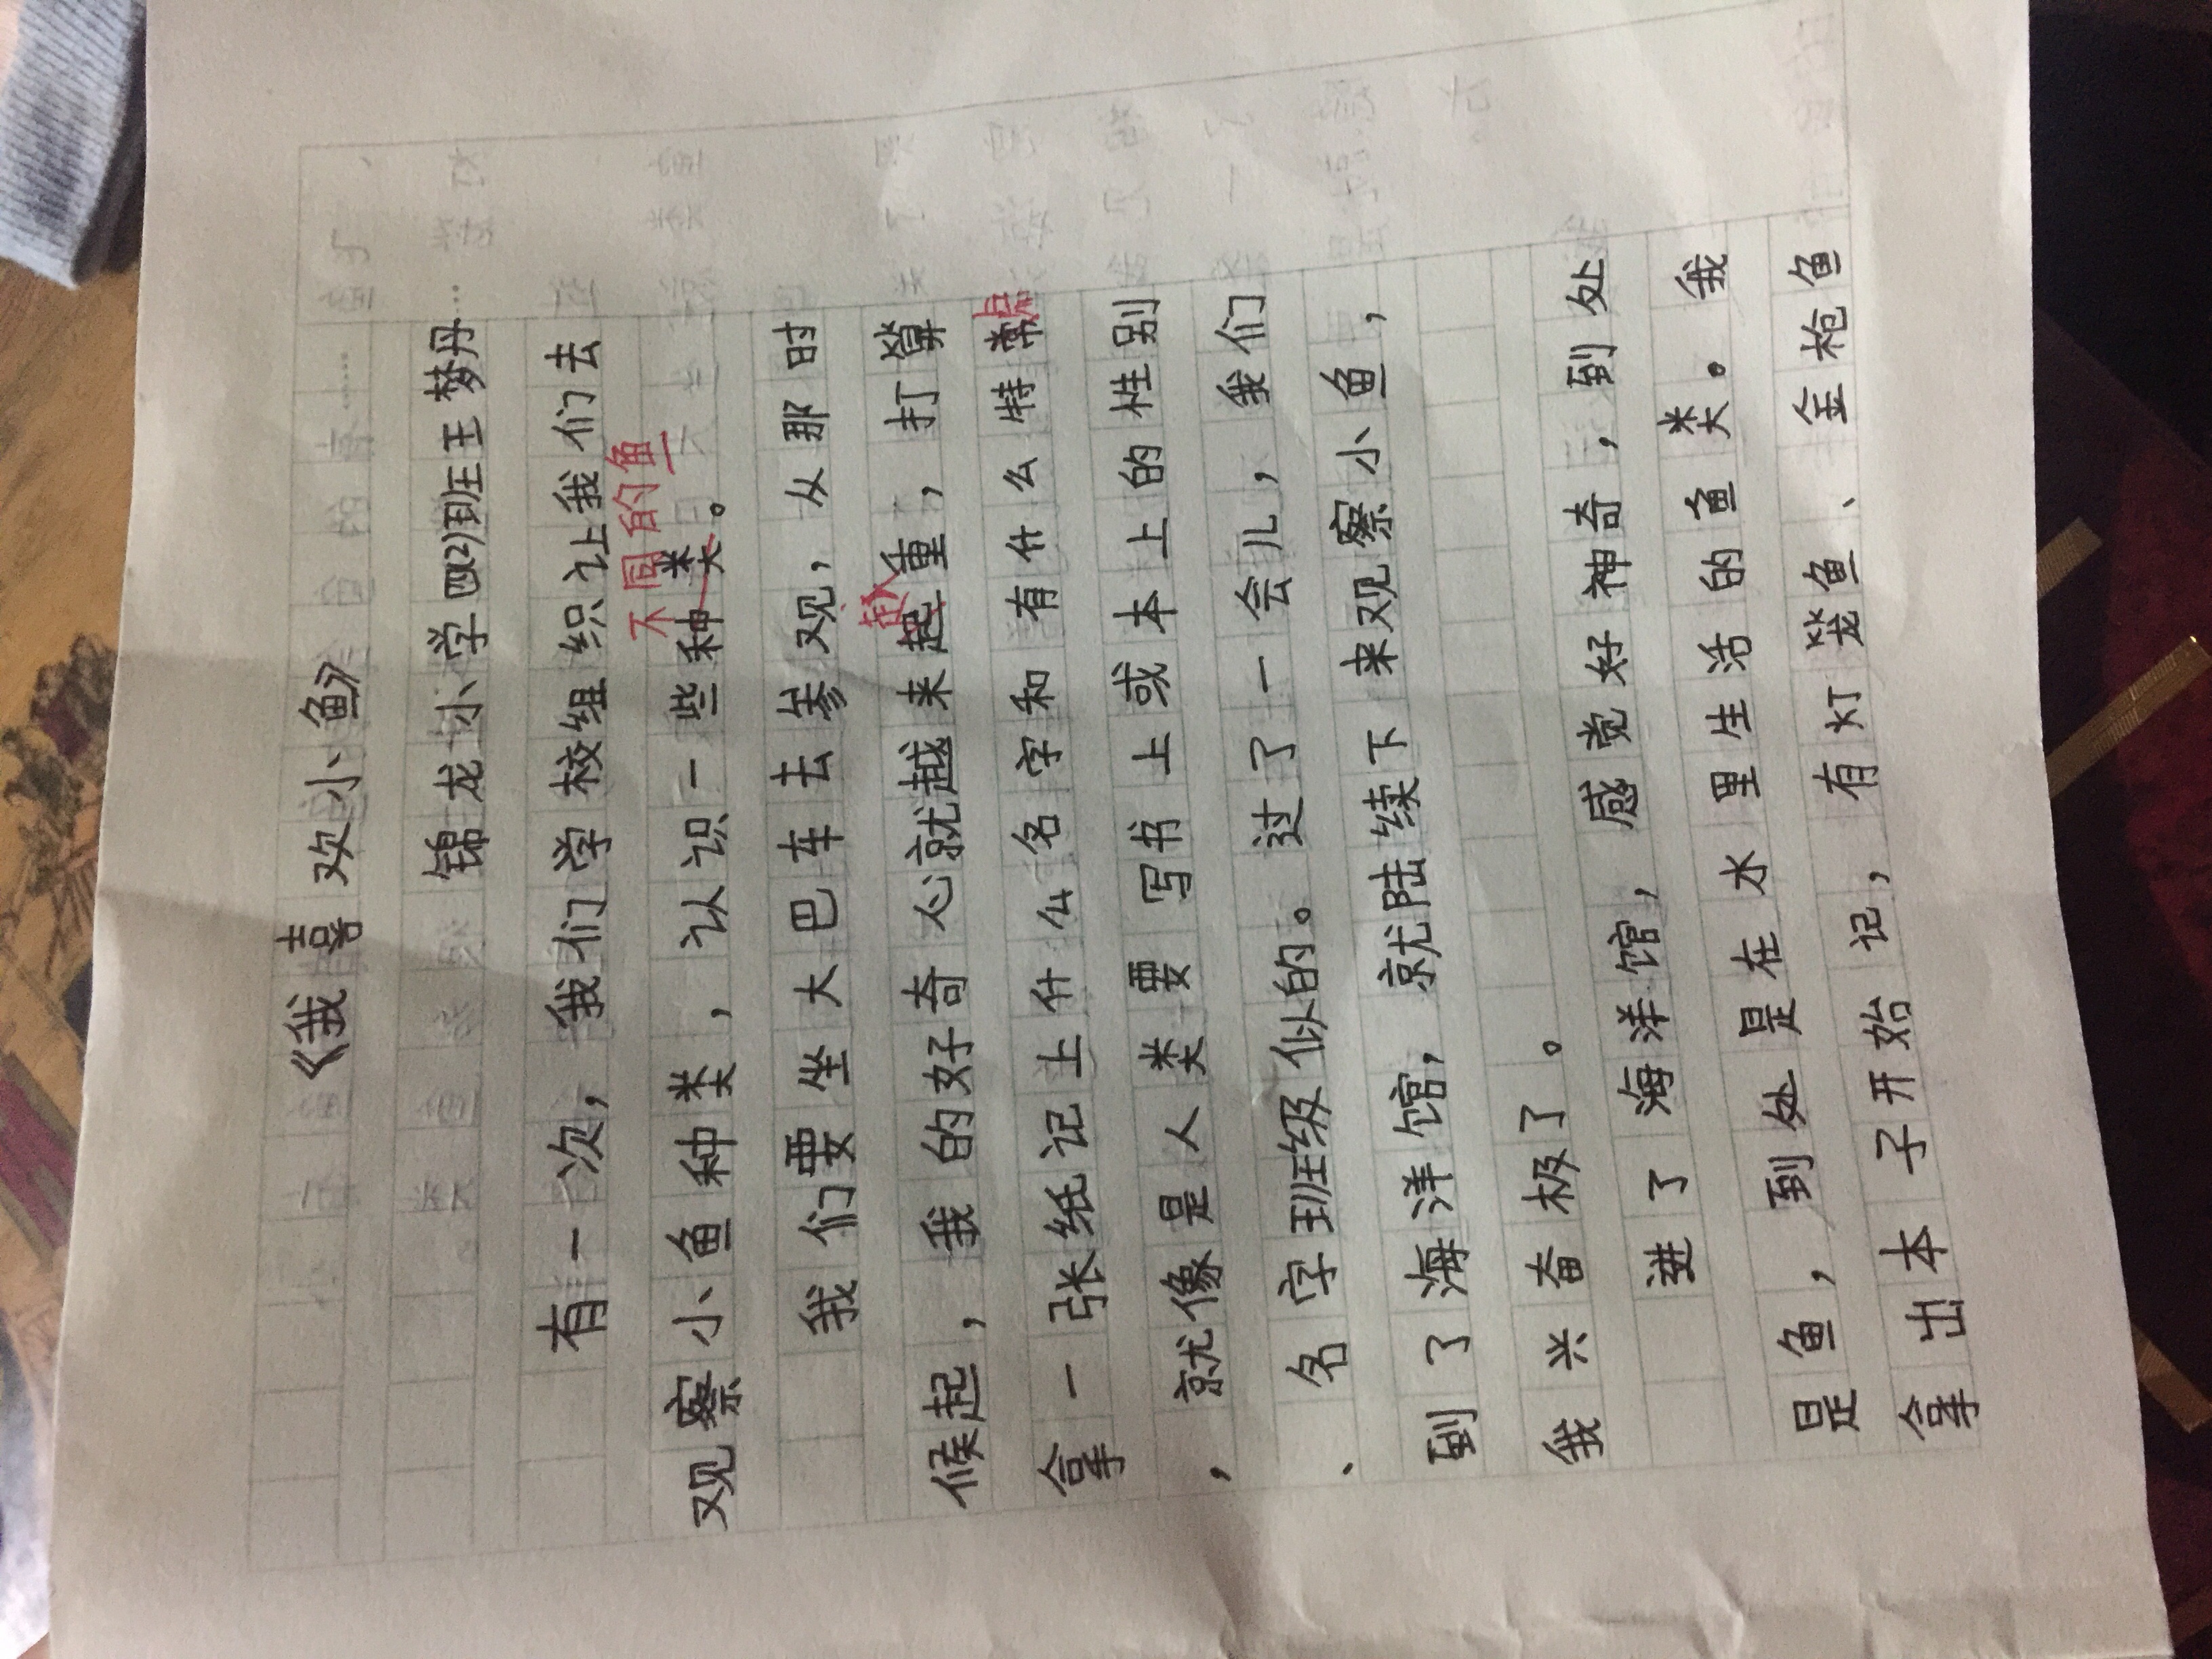 《我喜欢小鱼》
锦龙小学四(2)班王梦丹
有一次，我们学校组织让我们去
不同的鱼
观察小鱼种类，认识一些种类。
我们要坐大巴车去参观，从那时
候起，我的好奇心就越来越重，打算
拿一张纸记上什么名字和有什么特点
，就像是人类要写书上或本上的性别
、名字班级似的。过了一会儿，我们
到了海洋馆，就陆续下来观察小鱼，
我兴奋极了。
进了海洋馆，感觉好神奇，到处
是鱼，到处是在水里生活的鱼类。我
拿出本子开始记，有灯笼鱼、金枪鱼